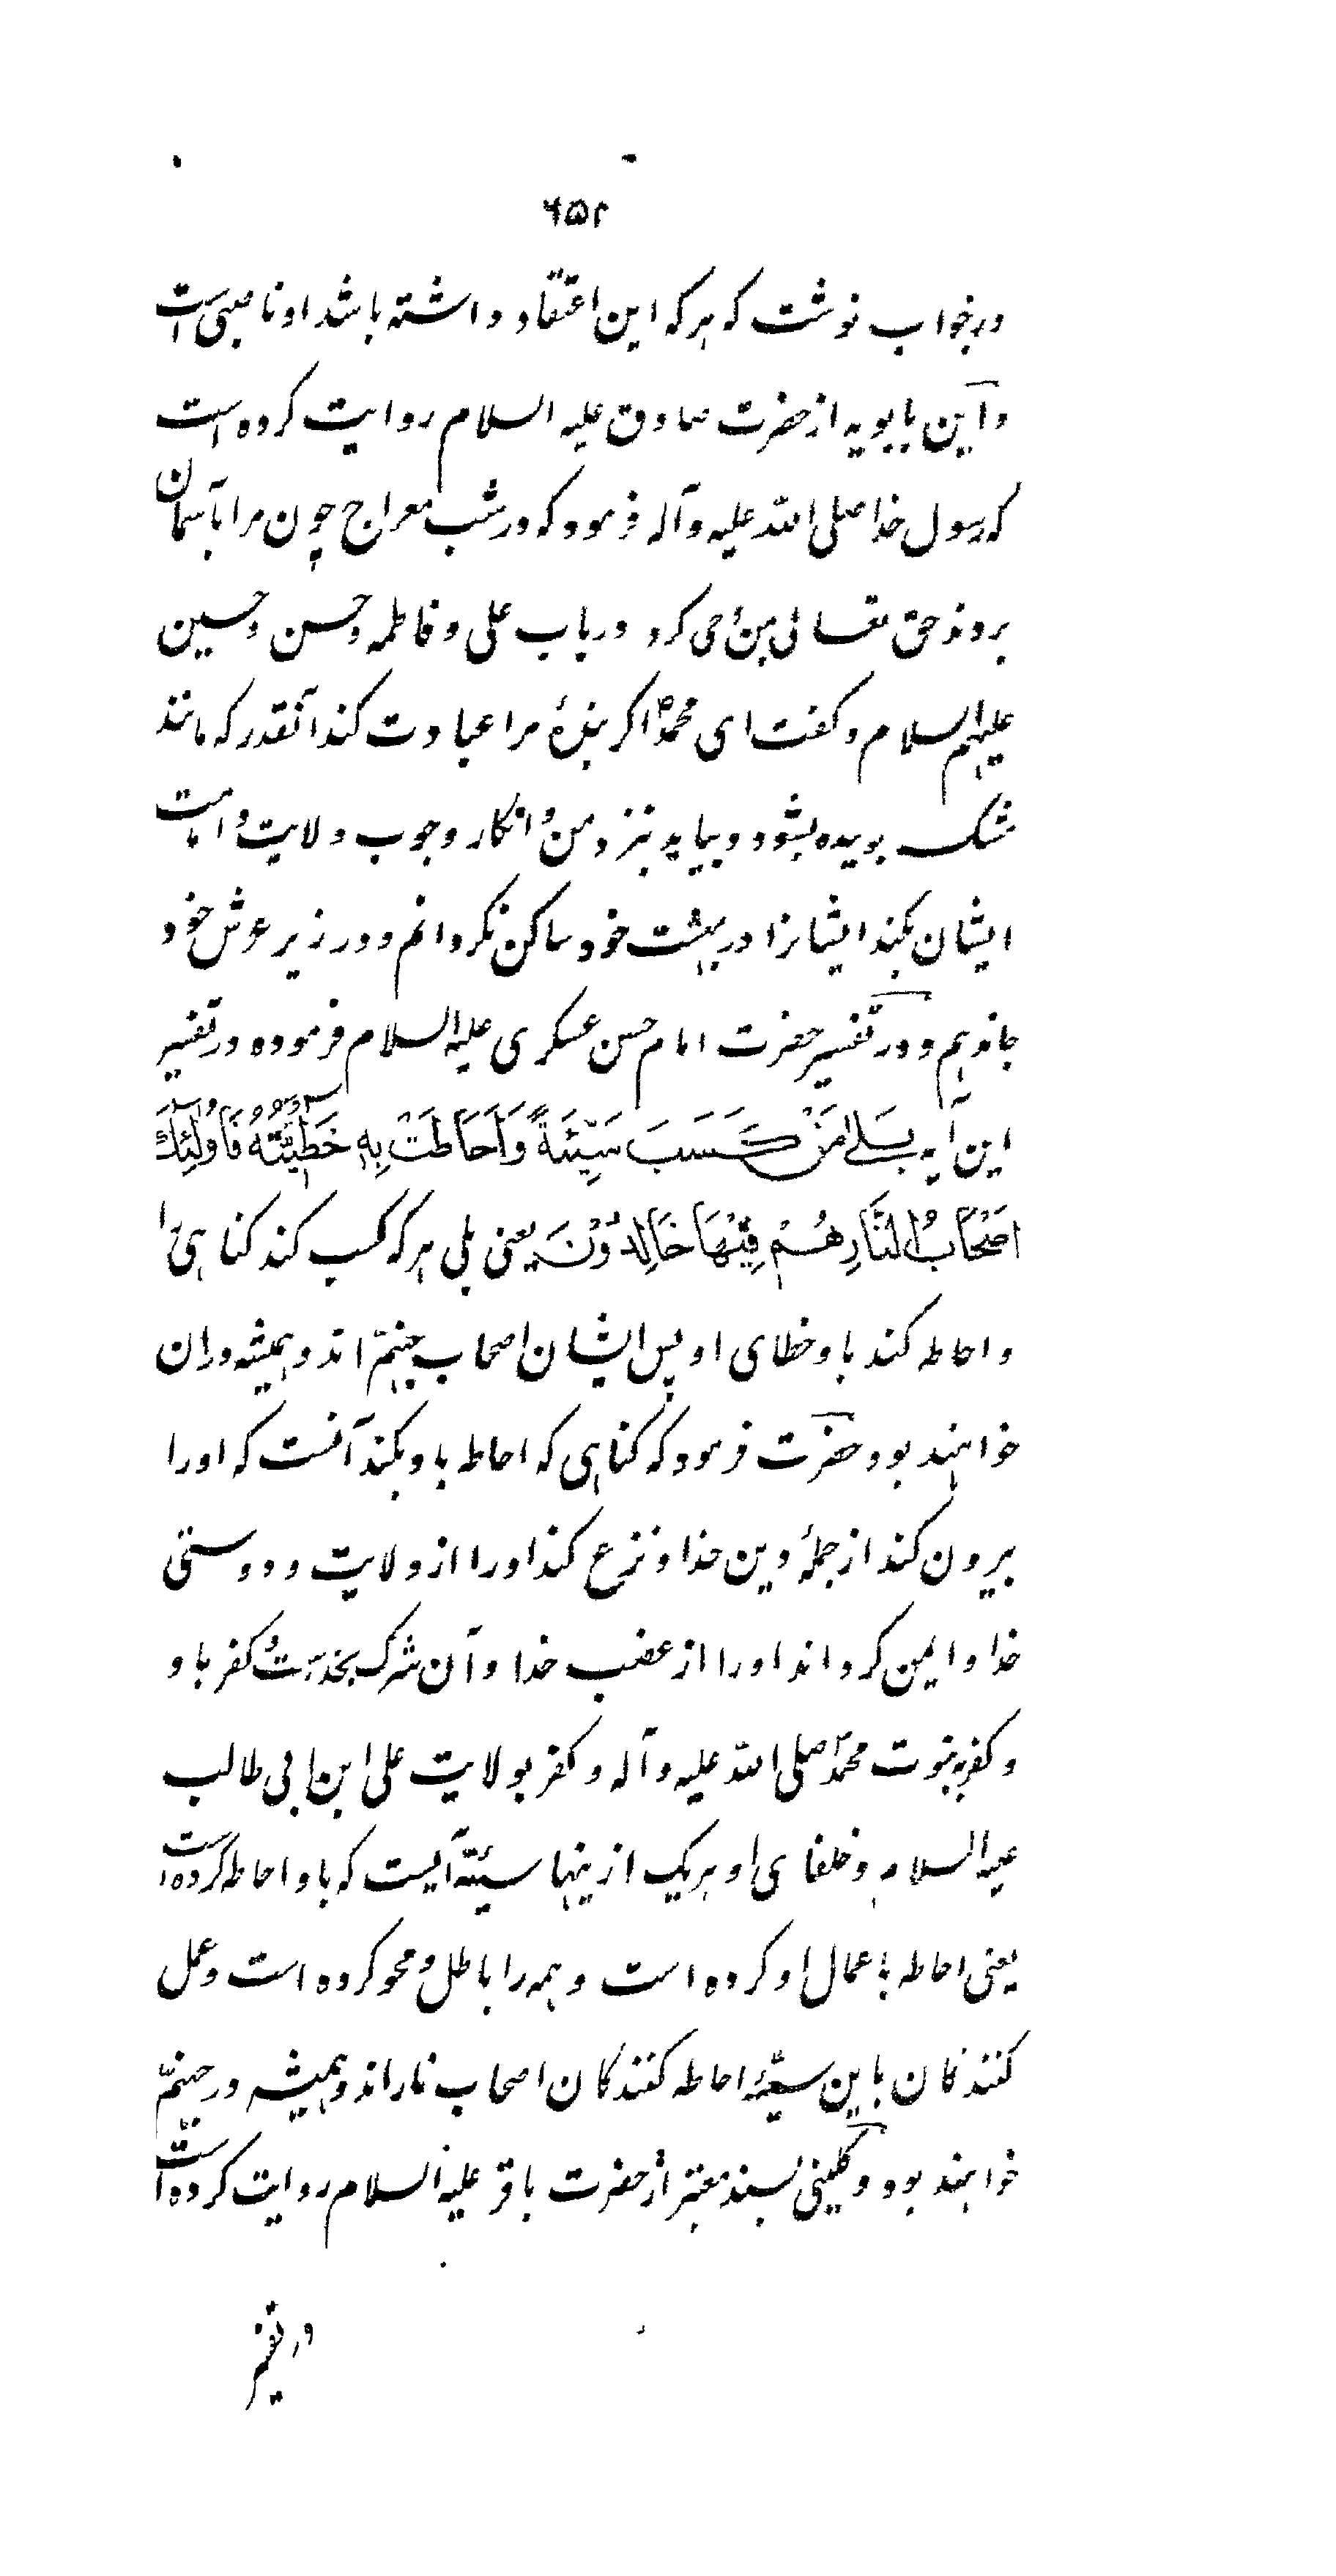 ۶۵۲
در جواب نوشت که هر که این اعتقاد داشته باشد او ناصبی است
و ابن بابویه از حضرت صادق علیه السلام روایت کرده است
که رسول خدا صلی الله علیه و آله فرمود که در شب معراج چون مرا بآسمان
بردند حق تعالی بمن وحی کرد در باب علی و فاطمه و حسن و حسین
علیهم السلام و کفت ای محمدؐ اکر بندهٔ مرا عبادت کند آنقدر که مانند
مشک بوسیده بشود و بیاید بنزد من و انکار وجوب ولایت و امامت
ایشان بکند ایشانرا در بهشت خود ساکن نکردانم و در زیر عرش خود
جا ندهم و در تفسیر حضرت امام حسن عسکری علیه السلام فرموده در تفسیر
این آیه بَلیٰ مَنْ کَسَبَ سَیِّئَةً وَاَحَاطَتْ بِهِ خَطِیْئَتُهُ فَاُولٰئِكَ
اَصْحَابُ النَّارِ هُمْ فِیْهَا خَالِدُوْنَ یعنی بلی هر که کسب کند کناهی را
و احاطه کند باو خطای او پس ایشان اصحاب جهنّم اند و همیشه در ان
خواهند بود حضرت فرمود که کناهی که احاطه باو بکند آنست که او را
بیرون کند از جملهٔ دین خدا و نزع کند او را از ولایت و دوستی
خدا و ایمن کرداند او را از غضب خدا و آن شرک بخداست و کفر باو
و کفر بنبوت محمدّ صلی الله علیه و آله و کفر بولایت علی ابن ابی طالب
علیه السلام و خلفای او هر یک از ینها سیئهٔ آیست که باو احاطه کرده است
یعنی احاطه باعمال او کرده است و همه را باطل و محو کرده است و عمل
کنندکان باین سیئهٔ احاطه کنندکان اصحاب نار اند و همیشه در جهنمّ
خواهند بود و کلینی بسند معتبر از حضرت باقر علیه السلام روایت کرده است
در تفسیر